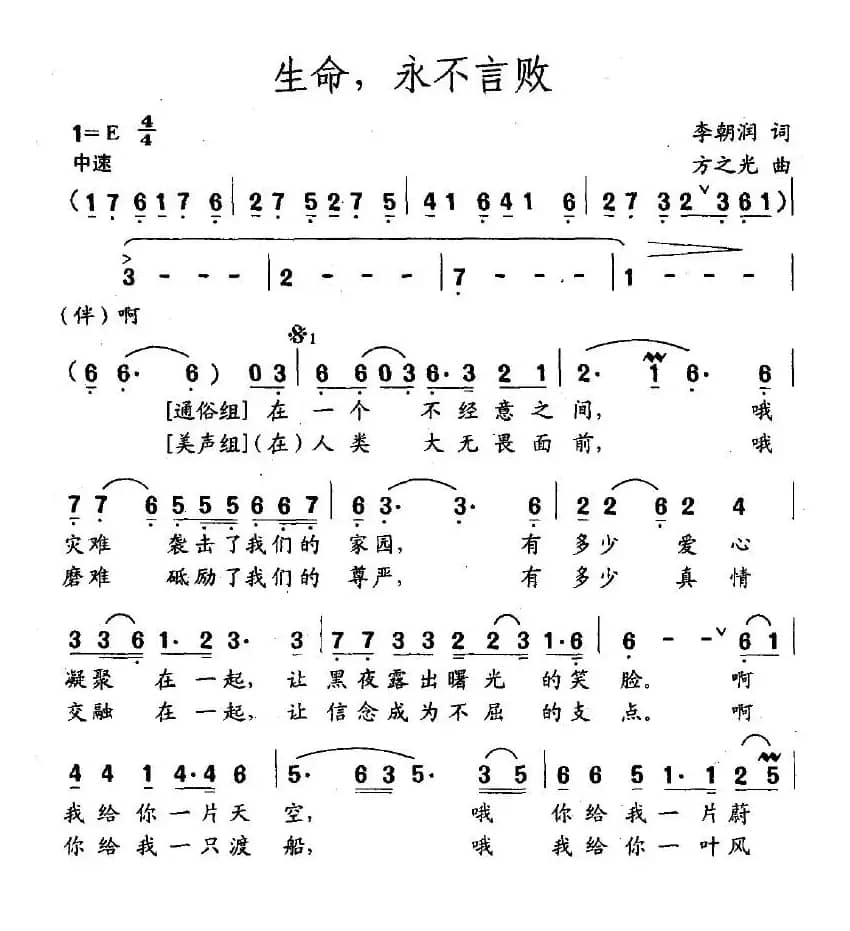 生命，永不言败
1=E 4/4
李朝润 词
中速
方之光 曲
(1 7 6 1 7 6 | 2 7 5 2 7 5 | 4 1 6 4 1 6 | 2 7 3 2 ∨ 3 6 1)|
3 - - - | 2 - - - | 7 - - - | 1 - - - |
(伴)啊
𝄋1
(6 6· 6) 0 3 | 6 6 0 3 6·3 2 1 | 2· 1 6· 6 |
[通俗组]在一个 不经意之间， 哦
[美声组](在)人类 大无畏面前， 哦
7 7 6 5 5 5 6 6 7 | 6 3· 3· 6 | 2 2 6 2 4 |
灾难 袭击了我们的 家园， 有多少 爱心
磨难 砥励了我们的 尊严， 有多少 真情
3 3 6 1·2 3· 3 | 7 7 3 3 2 2 3 1·6 | 6 - - ∨ 6 1 |
凝聚 在一起，让 黑夜露出曙光 的笑 脸。 啊
交融 在一起，让 信念成为不屈 的支 点。 啊
4 4 1 4·4 6 | 5· 6 3 5· 3 5 | 6 6 5 1·1 2 5 |
我给你一片天 空， 哦 你给我一片蔚
你给我一只渡 船， 哦 我给你一叶风